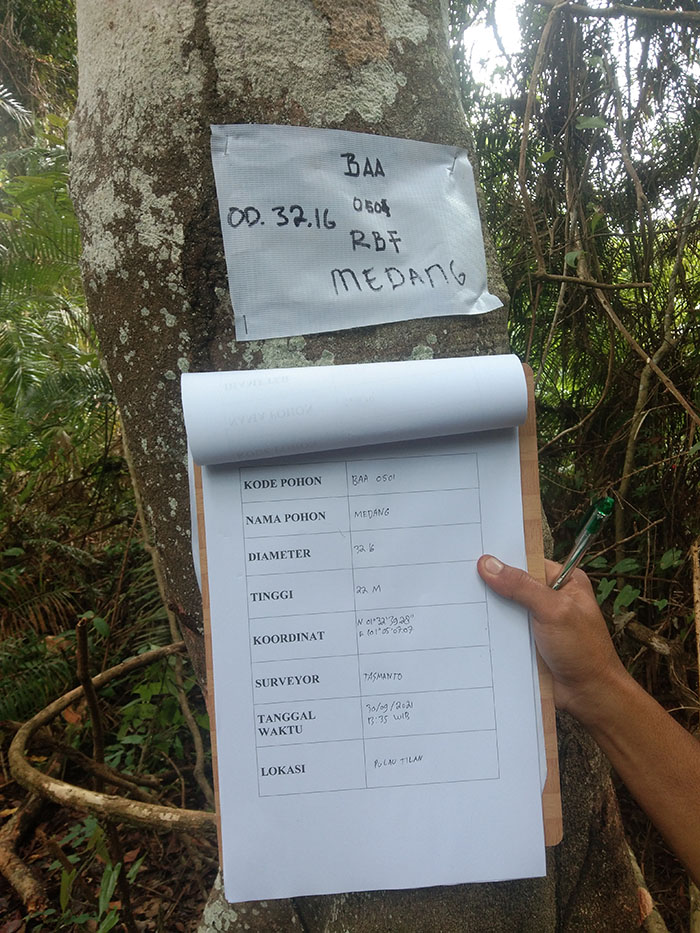 BAA
OD. 32.16 0501
RBF
MEDANG
KODE POHON BAA 0501
NAMA POHON MEDANG
DIAMETER 32 16
TINGGI 22 M
KOORDINAT N 01°32'39.28"
E 101°05'07.07
SURVEYOR TASMANTO
TANGGAL WAKTU 30/09/2021
13:35 WIB
LOKASI PULAU TILAN